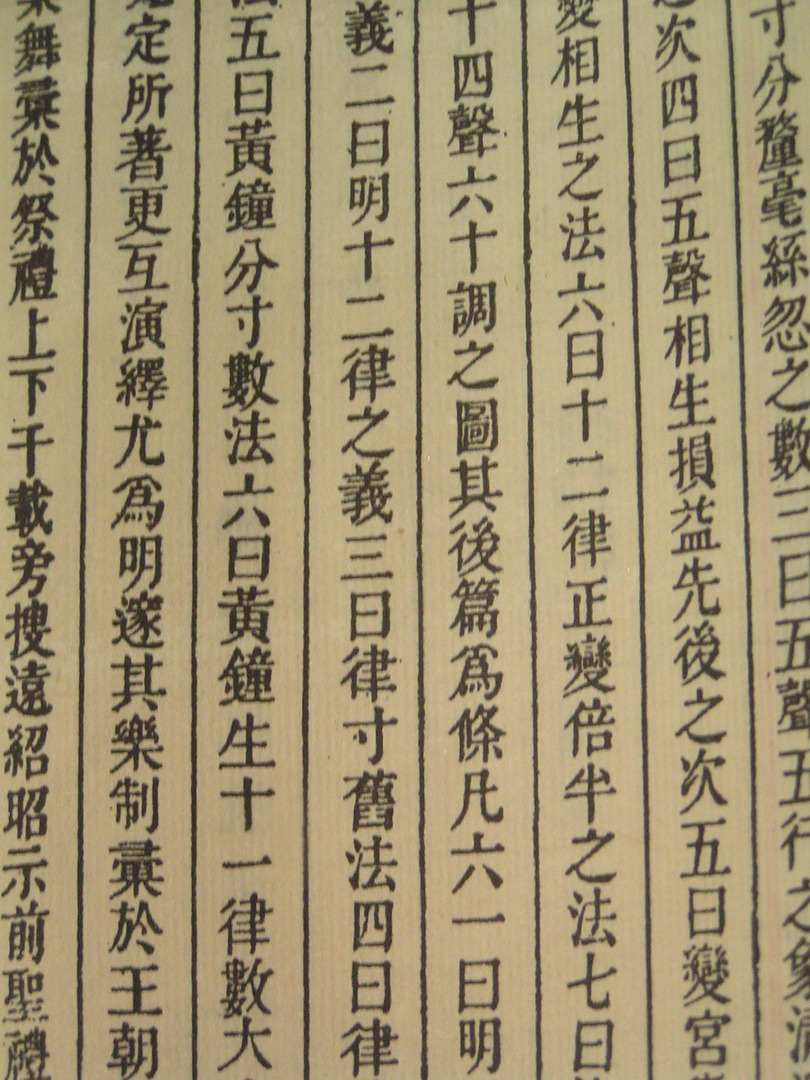 寸分釐毫絲忽之數三曰五聲五行之象
次四曰五聲相生損益先後之次五曰變宮
變相生之法六曰十二律正變倍半之法七曰
十四聲六十調之圖其後篇爲條凡六一曰明
義二曰明十二律之義三曰律寸舊法四曰律
法五曰黃鐘分寸數法六曰黃鐘生十一律數大
定所著更互演繹尤爲明邃其樂制彙於王朝
樂舞彙於祭禮上下千載旁搜遠紹昭示前聖禮